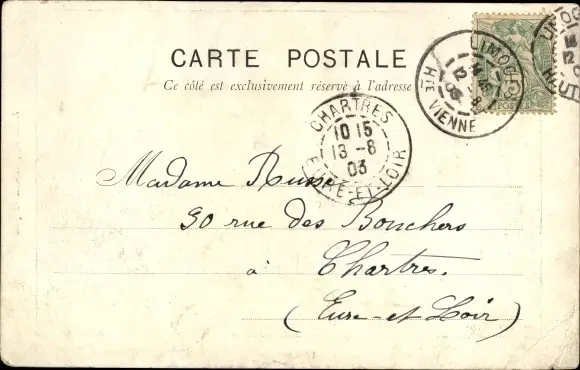 CARTE POSTALE
Ce côté est exclusivement réservé à l'adresse
LIMOGES
Hte VIENNE
5
POSTES
LIMOG
CHARTRES
10 15
13 - 8
03
EURE-ET-LOIR
Madame Russe
90 rue des Bouchers
à Chartres.
(Eure-et-Loir)